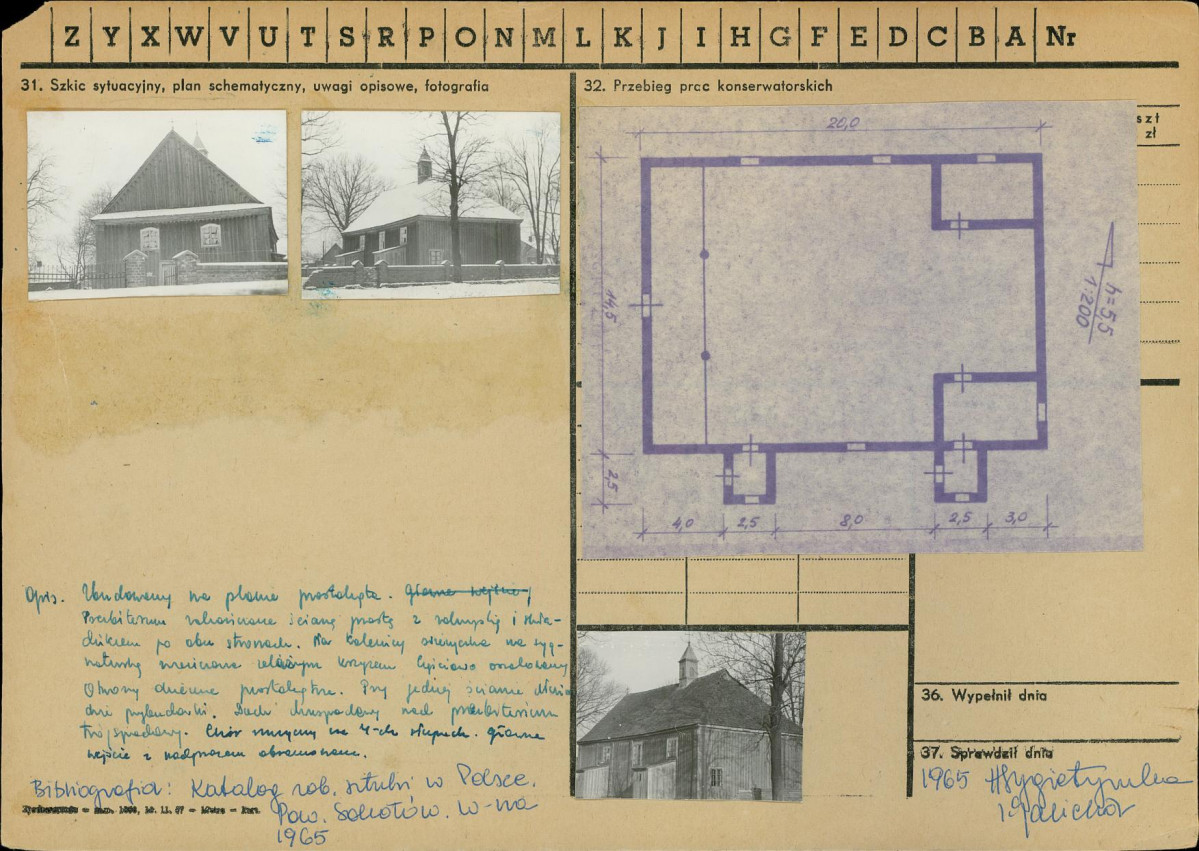 Z Y X W V U T S R P O N M L K J I H G F E D C B A Nr
31. Szkic sytuacyjny, plan schematyczny, uwagi opisowe, fotografia
32. Przebieg prac konserwatorskich
szt
zł
20,0
14,5
2,5
4,0 2,5 8,0 2,5 3,0
h=5,5
1:200
Opis. Zbudowany na planie prostokąta. główne wejście
Prezbiterium zakończone ścianą prostą z zakrystią i
po obu stronach. Na kalenicy wieżyczka na syg-
naturkę zwieńczona żelaznym krzyżem częściowo oszalowany
Otwory okienne prostokątne. Przy jednej ścianie
dwie przybudówki. Dach dwuspadowy nad prezbiterium
trójspadowy. Chór muzyczny na 4-ch słupach. główne
wejście z nadprożem
Bibliografia: Katalog zab. sztuki w Polsce.
Pow. Sokołów. W-wa
1965
36. Wypełnił dnia
37. Sprawdził dnia
1965